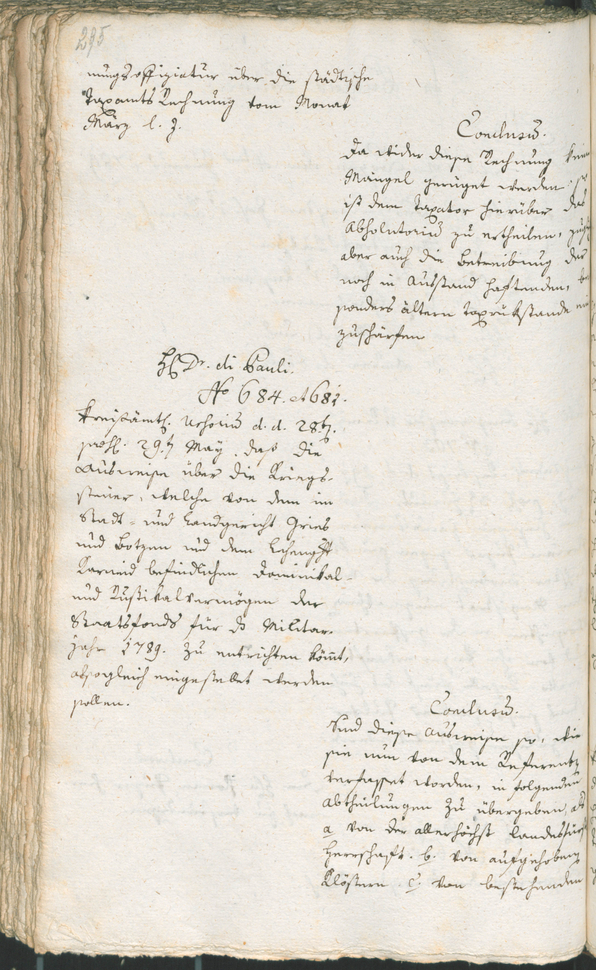 295
nungsoffiziatur über die städtische
Taxamts Rechnung vom Monat
März l. J.
Conclusum.
Da wider diese Rechnung keine
Mängel gerüget werden: so
ist dem Taxator hierüber das
Absolutorium zu ertheilen,
aber auch die Betreibung der
noch in Ausstand haftenden, be-
sonders ältern Taxrükstände
zuschärfen
H. Dr. di Pauli.
No 684. et 681.
Kreisämtl. Ursorium d. d. 28t.
praes. 29t May, daß die
Ausweise über die Kriegs-
steuer, welche von dem im
Stadt- und Landgericht Gries
und Botzen und dem Lehengericht
Karneid befindlichen Dominikal-
und Rustikalvermögen der
Staatsfonds für das Militar-
jahr 1789. zu entrichten kömmt,
alsogleich eingestellet werden
sollen.
Conclusum.
Sind diese Ausweise so, wie
sie nun von dem Referenten
verfasset worden, in folgenden
Abtheilungen zu übergeben, als
a von der allerhöchst landesfürst
Herrschaft. b. von aufgehobenen
Klöstern. c. von bestehenden